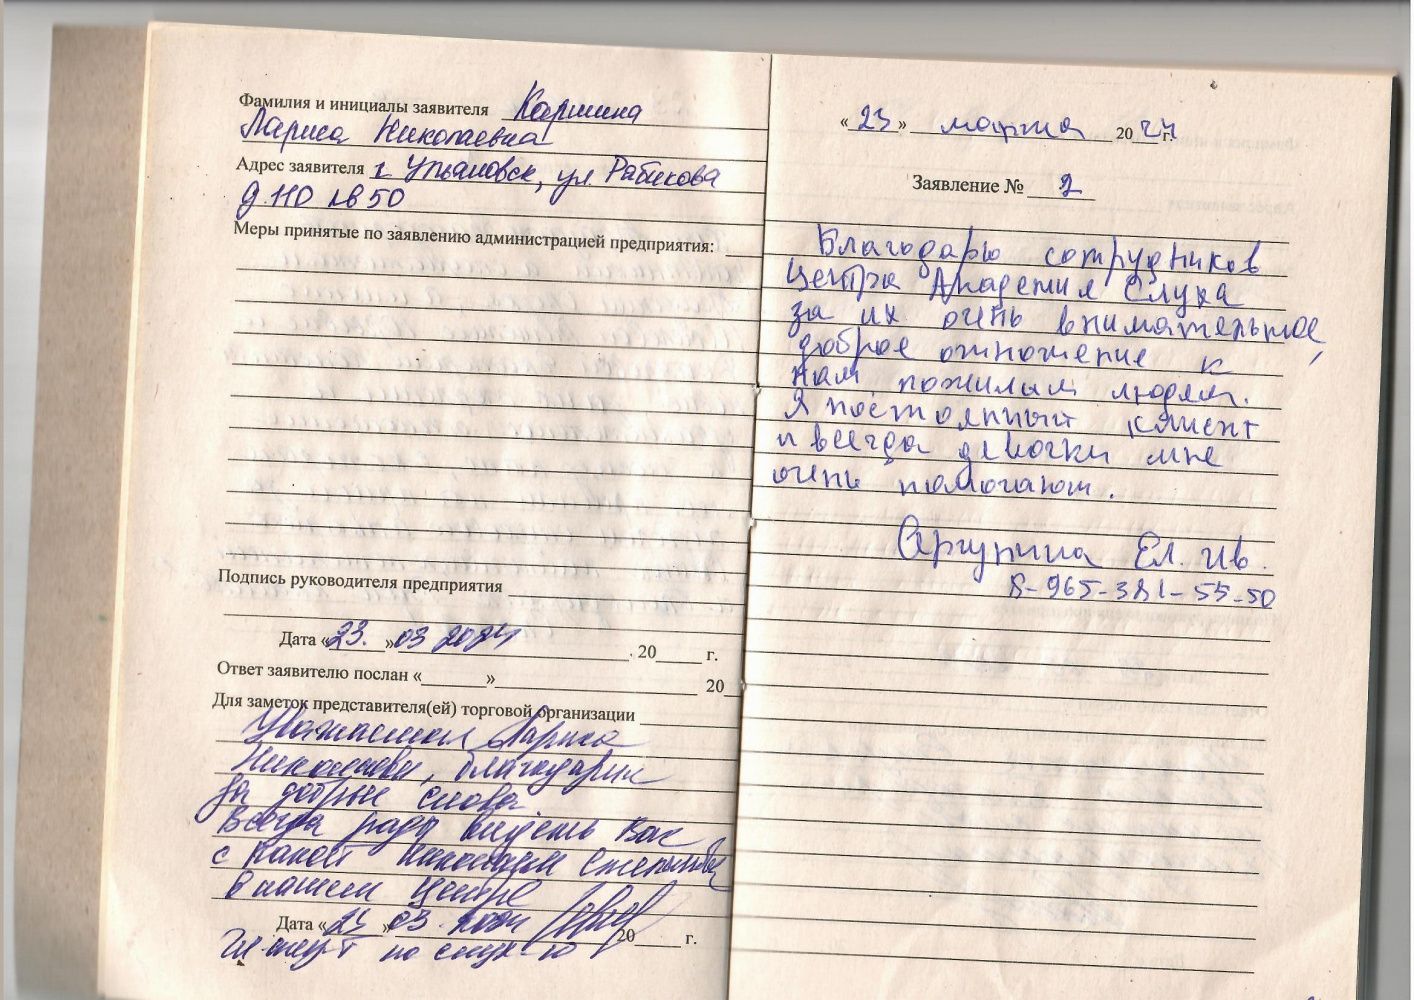 Фамилия и инициалы заявителя Каршина
Лариса Николаевна
Адрес заявителя г. Ульяновск, ул. Рабикова
д. 110 кв 50
Меры принятые по заявлению администрацией предприятия:
Подпись руководителя предприятия
Дата «23.» 03 2024 . 20 г.
Ответ заявителю послан « » 20
Для заметок представителя(ей) торговой организации
Уважаемая Лариса
Николаевна, благодарим
за добрые слова
Всегда рады видеть Вас
с папой Николаем
в нашем центре
Дата «23» 03. 2024 20 г.
по слух-ю
«23» марта 2024 г.
Заявление № 2
Благодарю сотрудников
Центра Академия Слуха
за их очень внимательное,
доброе отношение к
нам пожилым людям.
Я постоянный клиент
и всегда девочки мне
очень помогают.
Ел. Ив.
8-965-381-55-50